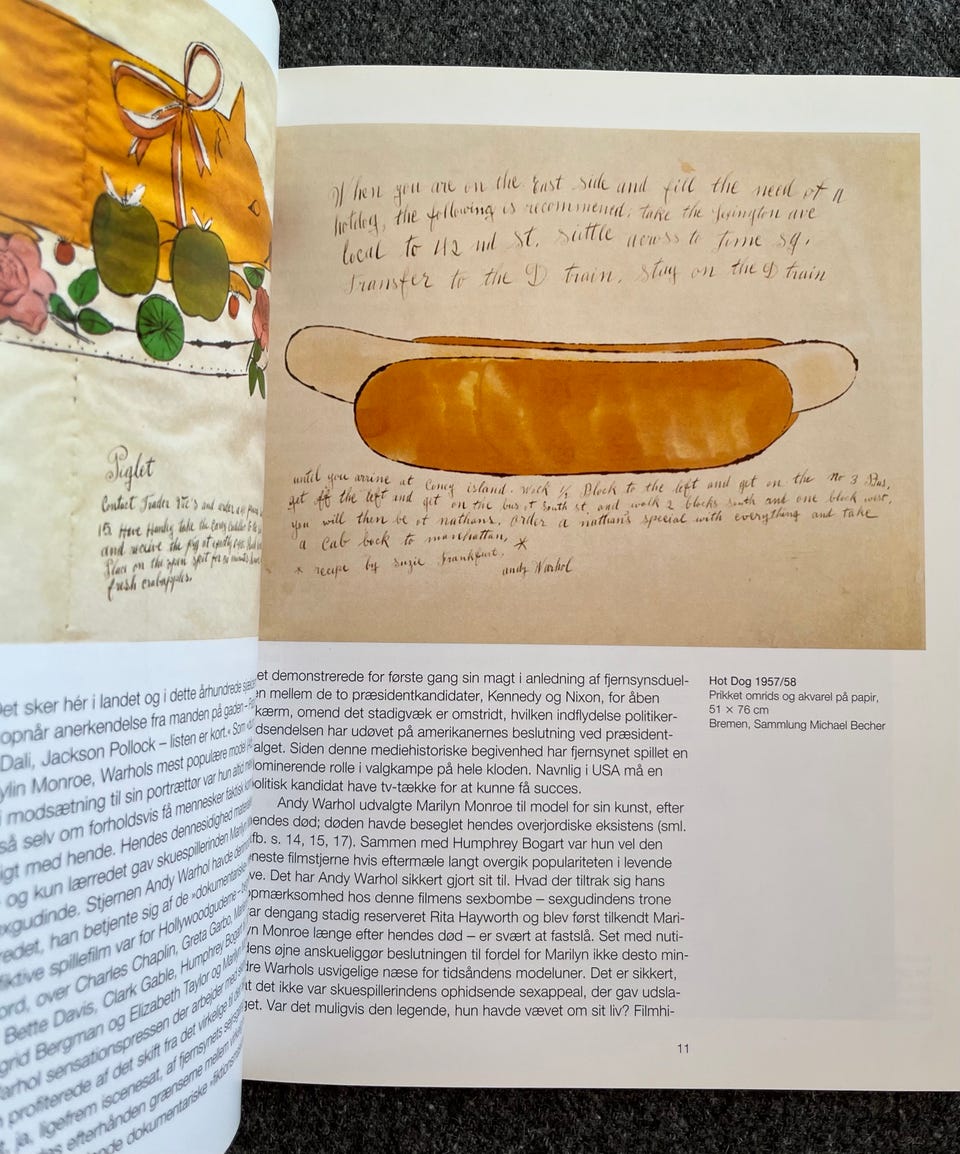 Piglet
Contact Trader Vic's and order
15. Have Hanley take the Carey Cadillac to the
and receive the pig at
Place on the open spit for 50 minutes
fresh crabapples.
et sker hér i landet og i dette århundrede
opnår anerkendelse fra manden på gaden –
Dali, Jackson Pollock – listen er kort.« Som
ylin Monroe, Warhols mest populære model
i modsætning til sin portrættør var hun altid
så selv om forholdsvis få mennesker faktisk
igt med hende. Hendes dennesidighed
og kun lærredet gav skuespillerinden
exgudinde. Stjernen Andy Warhol havde
redet, han betjente sig af de »dokumentariske
fiktive spillefilm var for Hollywoodguderne –
ord, over Charles Chaplin, Greta Garbo,
Bette Davis, Clark Gable, Humphrey Bogart
grid Bergman og Elizabeth Taylor og
arhol sensationspressen der arbejder med
profiterede af det skift fra det virkelige til
, ja, ligefrem iscenesat, af fjernsynets
es efterhånden grænserne mellem
nde dokumentariske »fiktions
When you are on the East side and fill the need of a
hotdog, the following is recommened: take the lexington ave
local to 42 nd St. Suttle across to time sq.
Transfer to the D train. Stay on the D train
until you arrine at Coney island. Walk ½ Block to the left and get on the no 3 Bus,
get off the left and get on the bus at South st. and walk 2 blocks south and one block west.
you will then be at nathans. Order a nathan's special with everything and take
a Cab back to manhattan, *
* recipe by Suzie Frankfurt.
andy Warhol
et demonstrerede for første gang sin magt i anledning af fjernsynsduel-
n mellem de to præsidentkandidater, Kennedy og Nixon, for åben
kærm, omend det stadigvæk er omstridt, hvilken indflydelse politiker-
dsendelsen har udøvet på amerikanernes beslutning ved præsident-
alget. Siden denne mediehistoriske begivenhed har fjernsynet spillet en
ominerende rolle i valgkampe på hele kloden. Navnlig i USA må en
olitisk kandidat have tv-tække for at kunne få succes.
Andy Warhol udvalgte Marilyn Monroe til model for sin kunst, efter
endes død; døden havde beseglet hendes overjordiske eksistens (sml.
fb. s. 14, 15, 17). Sammen med Humphrey Bogart var hun vel den
neste filmstjerne hvis eftermæle langt overgik populariteten i levende
ve. Det har Andy Warhol sikkert gjort sit til. Hvad der tiltrak sig hans
pmærksomhed hos denne filmens sexbombe – sexgudindens trone
ar dengang stadig reserveret Rita Hayworth og blev først tilkendt Mari-
yn Monroe længe efter hendes død – er svært at fastslå. Set med nuti-
dens øjne anskueliggør beslutningen til fordel for Marilyn ikke desto min-
dre Warhols usvigelige næse for tidsåndens modeluner. Det er sikkert,
at det ikke var skuespillerindens ophidsende sexappeal, der gav udsla-
get. Var det muligvis den legende, hun havde vævet om sit liv? Filmhi-
Hot Dog 1957/58
Prikket omrids og akvarel på papir,
51 × 76 cm
Bremen, Sammlung Michael Becher
11